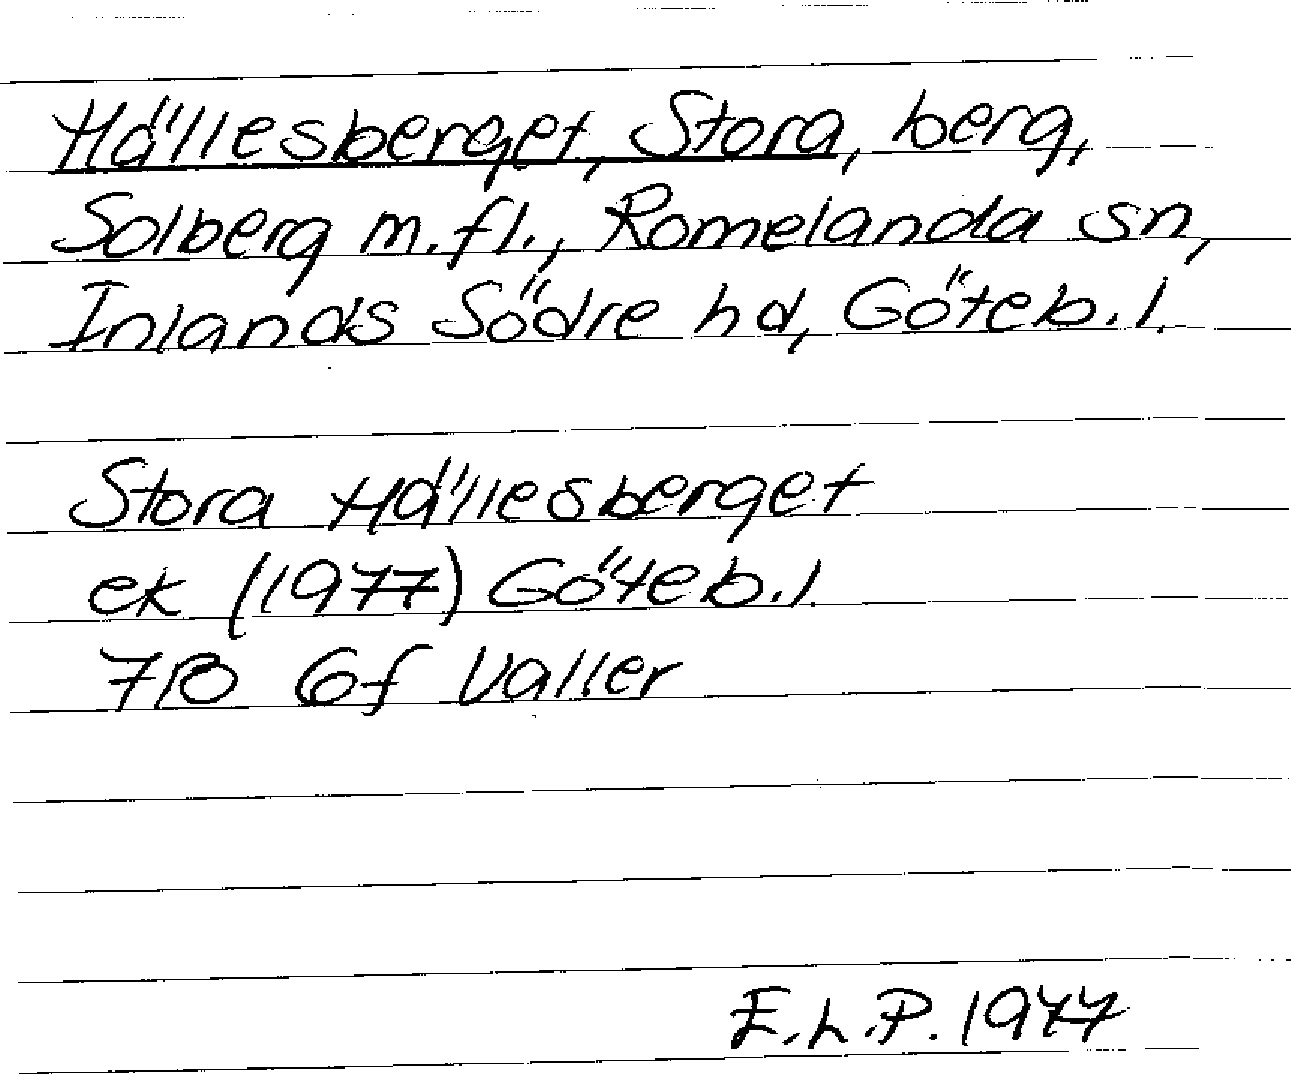 Hällesberget, Stora, berg,
Solberg m.fl., Romelanda sn,
Inlands Södre hd, Göteb.l.
Stora Hällesberget
ek (1977) Göteb.l.
7B 6f Valler
E.L.P. 1977